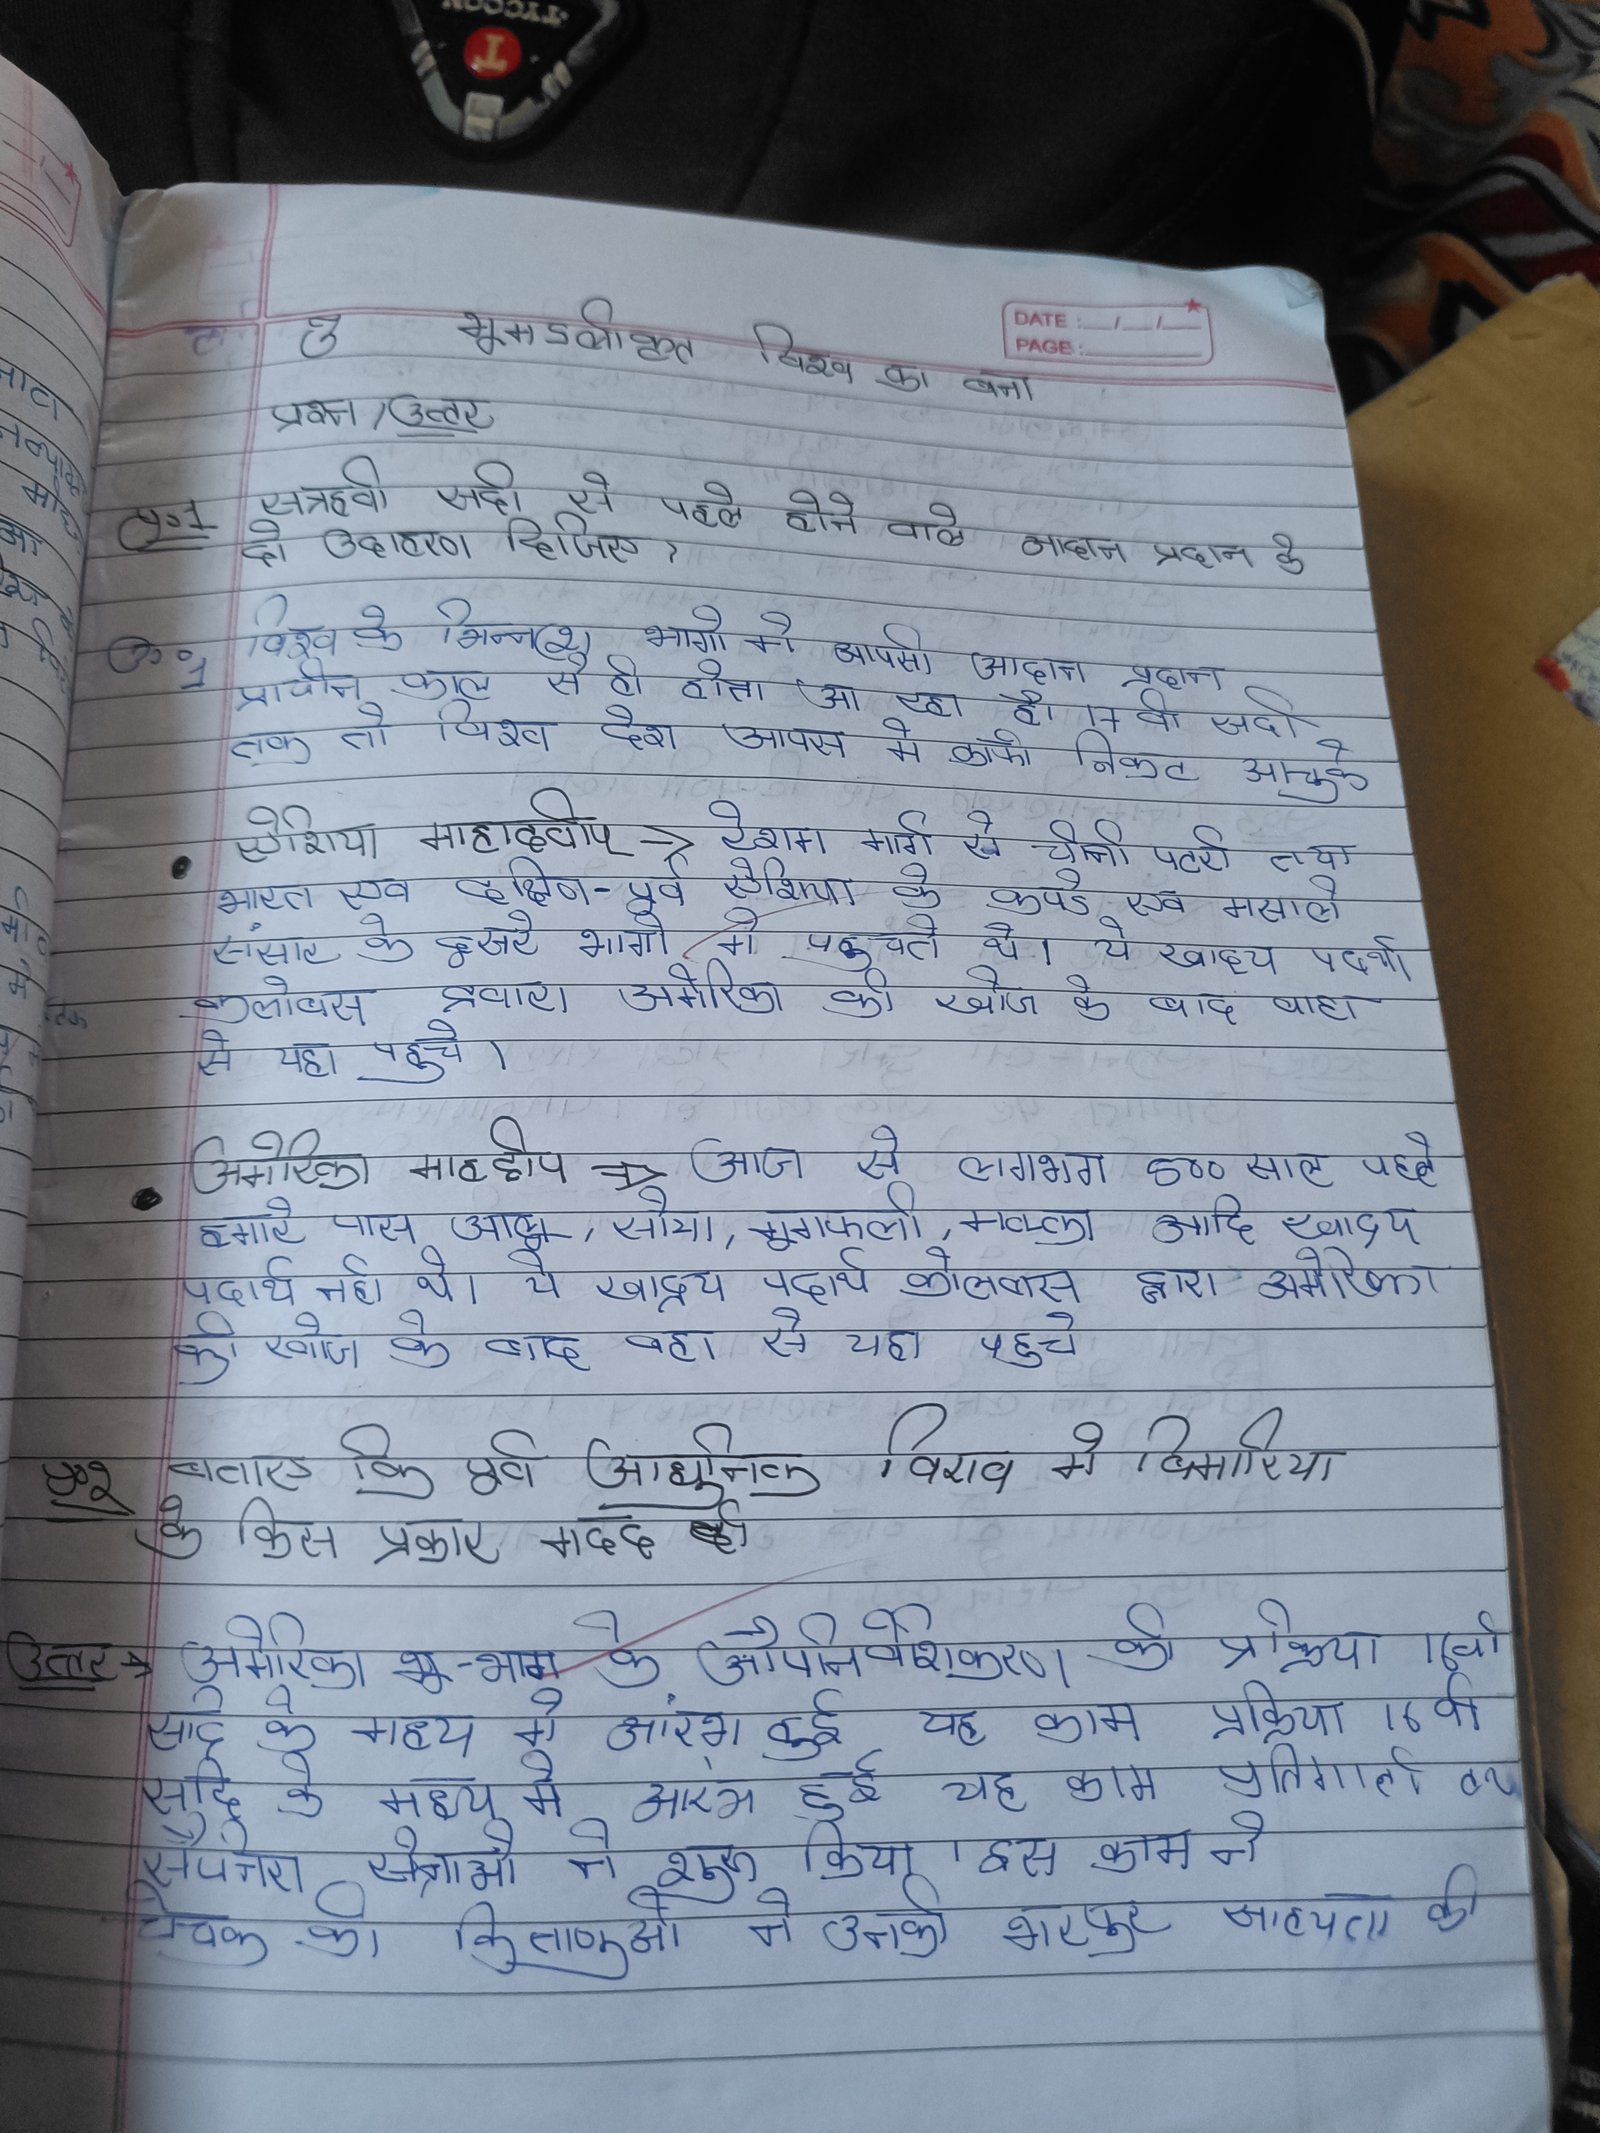 TYCOON
T
DATE : __/__/__
PAGE :
भूमडलीकृत विश्व का बना
प्रश्न / उत्तर
प्र०1 सत्रहवी सदी से पहले होने वाले आदान प्रदान के
दो उदाहरण दिजिए ?
उ०1 विश्व के भिन्न(२) भागो मे आपसी आदान प्रदान
प्राचीन काल से ही होता आ रहा है। 17 वी सदी
तक तो विश्व देश आपस मे काफी निकट आचुके
• ऐशिया माहाद्वीप → रेशम मार्ग से चीनी पटरी तथा
भारत एव दक्षिण-पूर्व ऐशिया के कपडे एव मसाले
संसार के दुसरे भागो मे पहुचते थे। ये खाद्य पदार्थ
कलोबस द्रवारा अमेरिका की खोज के बाद वाहा
से यहा पहुचे।
• अमेरिका माहद्वीप → आज से लगभग 500 साल पहले
हमारे पास आलू, सोया, मुगफली, मक्का आदि खाद्य
पदार्थ नही थे। ये खाद्य पदार्थ कोलबस द्वारा अमेरिका
की खोज के बाद वहा से यहा पहुचे
प्र०२ बताए कि पूर्व आधुनिक विशव मे बिमारिया
के किस प्रकार मदद की
उत्तर → अमेरिका भू-भाग के औपनिवेशिकरण की प्रक्रिया 16वी
सदि के मध्य मे आरंभ हुई यह काम प्रक्रिया 16 वी
सदि के मध्य मे आरंभ हुई यह काम पुर्तिगाली
सेपनेरा सेनाओ ने शुरू किया। इस काम ने
चेचक की किताणुओ ने उनकी भरपुर साहयता की